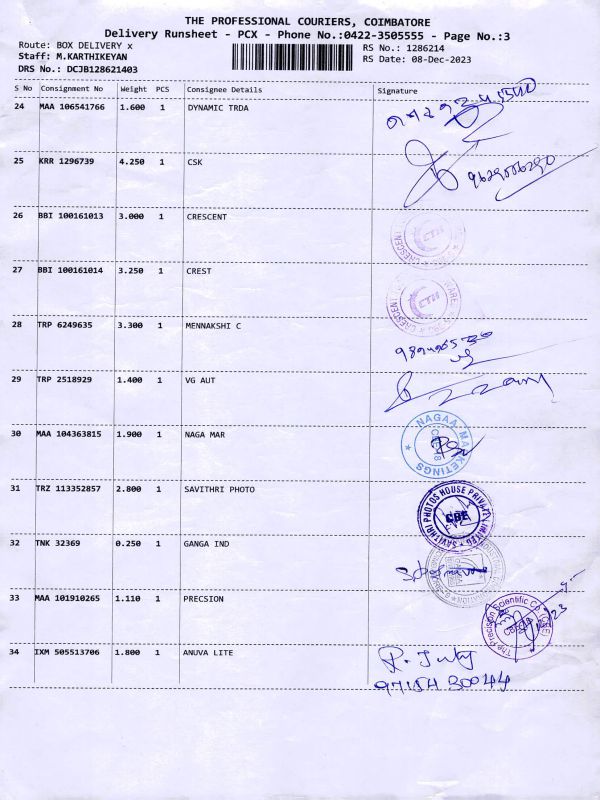 THE PROFESSIONAL COURIERS, COIMBATORE
Delivery Runsheet - PCX - Phone No.:0422-3505555 - Page No.:3
Route: BOX DELIVERY x
RS No.: 1286214
Staff: M.KARTHIKEYAN
RS Date: 08-Dec-2023
DRS No.: DCJB128621403
S No Consignment No Weight PCS Consignee Details Signature
24 MAA 106541766 1.600 1 DYNAMIC TRDA
25 KRR 1296739 4.250 1 CSK
26 BBI 100161013 3.000 1 CRESCENT
27 BBI 100161014 3.250 1 CREST
28 TRP 6249635 3.300 1 MENNAKSHI C
29 TRP 2518929 1.400 1 VG AUT
30 MAA 104363815 1.900 1 NAGA MAR
NAGAA MARKETINGS
31 TRZ 113352857 2.800 1 SAVITHRI PHOTO
SAVITHRI PHOTOS HOUSE PRIVATE LIMITED
CBE
32 TNK 32369 0.250 1 GANGA IND
33 MAA 101910265 1.110 1 PRECSION
The Precision Scientific Co. (CBE)
34 IXM 505513706 1.800 1 ANUVA LITE
97154 30044